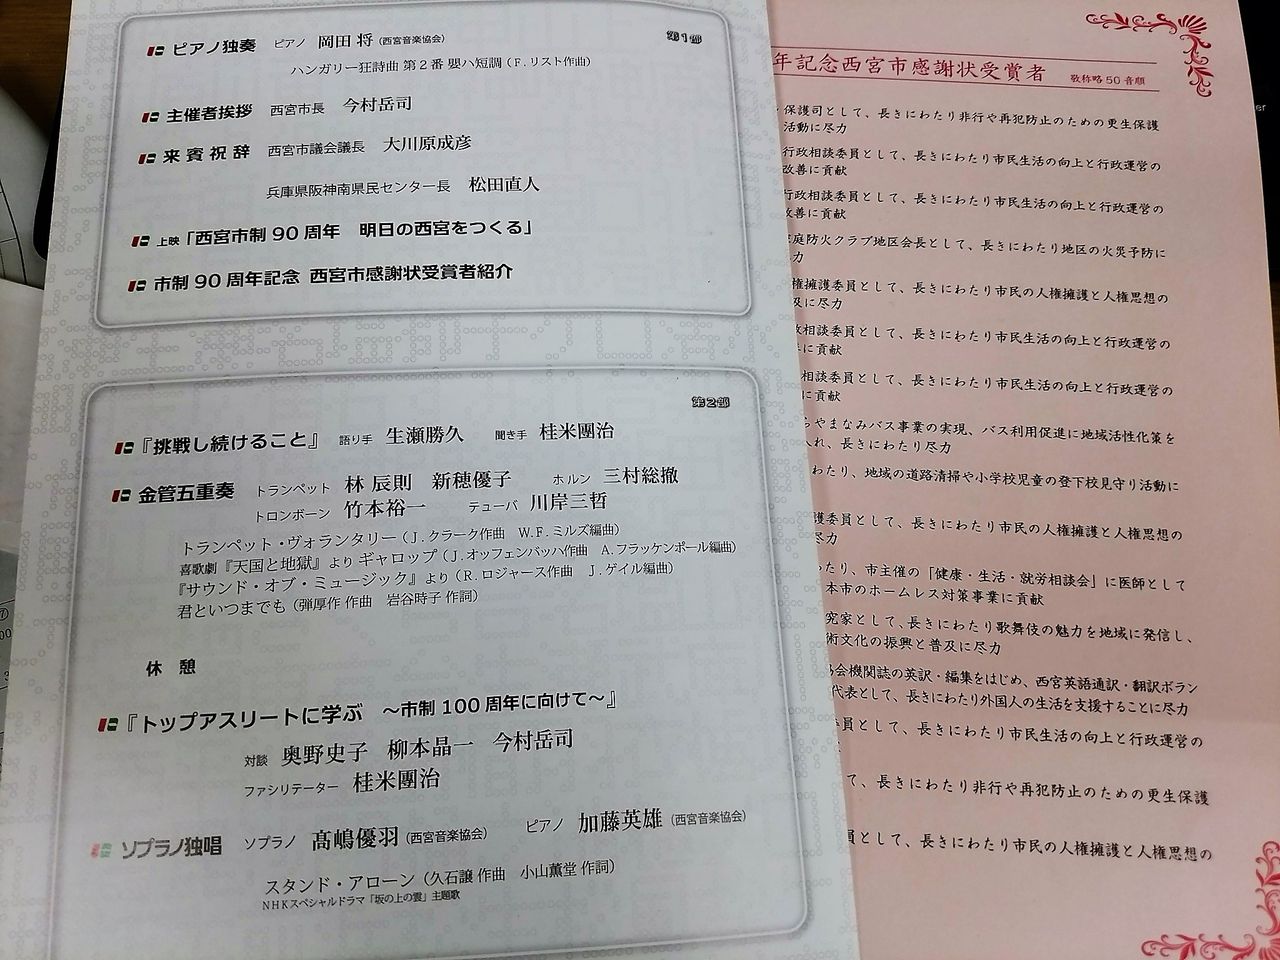 第1部
ピアノ独奏 ピアノ 岡田 将 (西宮音楽協会)
ハンガリー狂詩曲 第2番 嬰ハ短調 (F.リスト作曲)
主催者挨拶 西宮市長 今村岳司
来賓祝辞 西宮市議会議長 大川原成彦
兵庫県阪神南県民センター長 松田直人
上映「西宮市制90周年 明日の西宮をつくる」
市制90周年記念 西宮市感謝状受賞者紹介
第2部
『挑戦し続けること』 語り手 生瀬勝久 聞き手 桂米團治
金管五重奏 トランペット 林 辰則 新穂優子 ホルン 三村総撤
トロンボーン 竹本裕一 テューバ 川岸三哲
トランペット・ヴォランタリー (J.クラーク作曲 W.F.ミルズ編曲)
喜歌劇『天国と地獄』より ギャロップ (J.オッフェンバッハ作曲 A.フラッケンポール編曲)
『サウンド・オブ・ミュージック』より (R.ロジャース作曲 J.ゲイル編曲)
君といつまでも (弾厚作 作曲 岩谷時子 作詞)
休 憩
『トップアスリートに学ぶ ～市制100周年に向けて～』
対談 奥野史子 柳本晶一 今村岳司
ファシリテーター 桂米團治
ソプラノ独唱 ソプラノ 髙嶋優羽 (西宮音楽協会) ピアノ 加藤英雄 (西宮音楽協会)
スタンド・アローン (久石譲 作曲 小山薫堂 作詞)
NHKスペシャルドラマ「坂の上の雲」主題歌
年記念西宮市感謝状受賞者 敬称略50音順
保護司として、長きにわたり非行や再犯防止のための更生保護
活動に尽力
行政相談委員として、長きにわたり市民生活の向上と行政運営の
改善に貢献
行政相談委員として、長きにわたり市民生活の向上と行政運営の
改善に貢献
家庭防火クラブ地区会長として、長きにわたり地区の火災予防に
力
権擁護委員として、長きにわたり市民の人権擁護と人権思想の
及に尽力
政相談委員として、長きにわたり市民生活の向上と行政運営の
に貢献
相談委員として、長きにわたり市民生活の向上と行政運営の
に貢献
らやまなみバス事業の実現、バス利用促進に地域活性化策を
入れ、長きにわたり尽力
わたり、地域の道路清掃や小学校児童の登下校見守り活動に
護委員として、長きにわたり市民の人権擁護と人権思想の
尽力
わたり、市主催の「健康・生活・就労相談会」に医師として
本市のホームレス対策事業に貢献
究家として、長きにわたり歌舞伎の魅力を地域に発信し、
術文化の振興と普及に尽力
会機関誌の英訳・編集をはじめ、西宮英語通訳・翻訳ボラン
代表として、長きにわたり外国人の生活を支援することに尽力
員として、長きにわたり市民生活の向上と行政運営の
て、長きにわたり非行や再犯防止のための更生保護
員として、長きにわたり市民の人権擁護と人権思想の